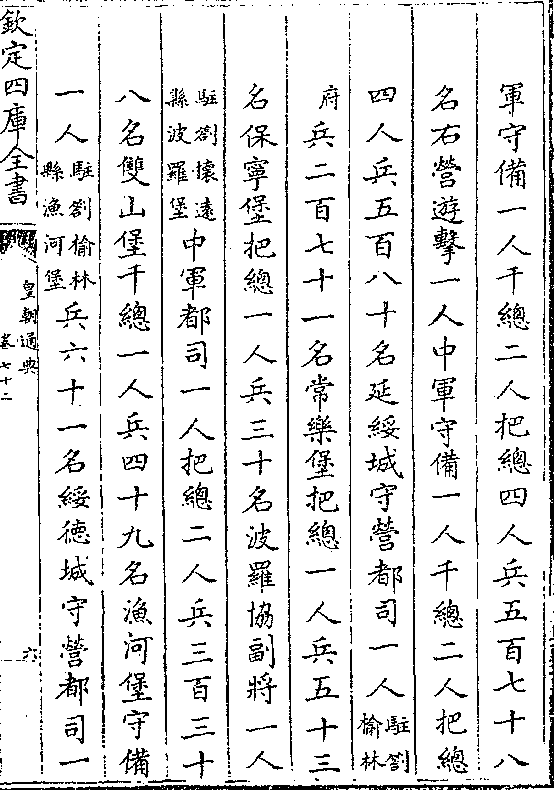 軍守備一人千總二人把總四人兵五百七十八
名右營遊擊一人中軍守備一人千總二人把總
四人兵五百八十名延綏城守營都司一人駐劄榆林
府兵二百七十一名常樂堡把總一人兵五十三
名保寧堡把總一人兵三十名波羅協副將一人
駐劄懷遠縣波羅堡中軍都司一人把總二人兵三百三十
八名雙山堡千總一人兵四十九名漁河堡守備
一人駐劄榆林縣漁河堡兵六十一名綏德城守營都司一
欽定四庫全書
皇朝通典
卷七十二
六